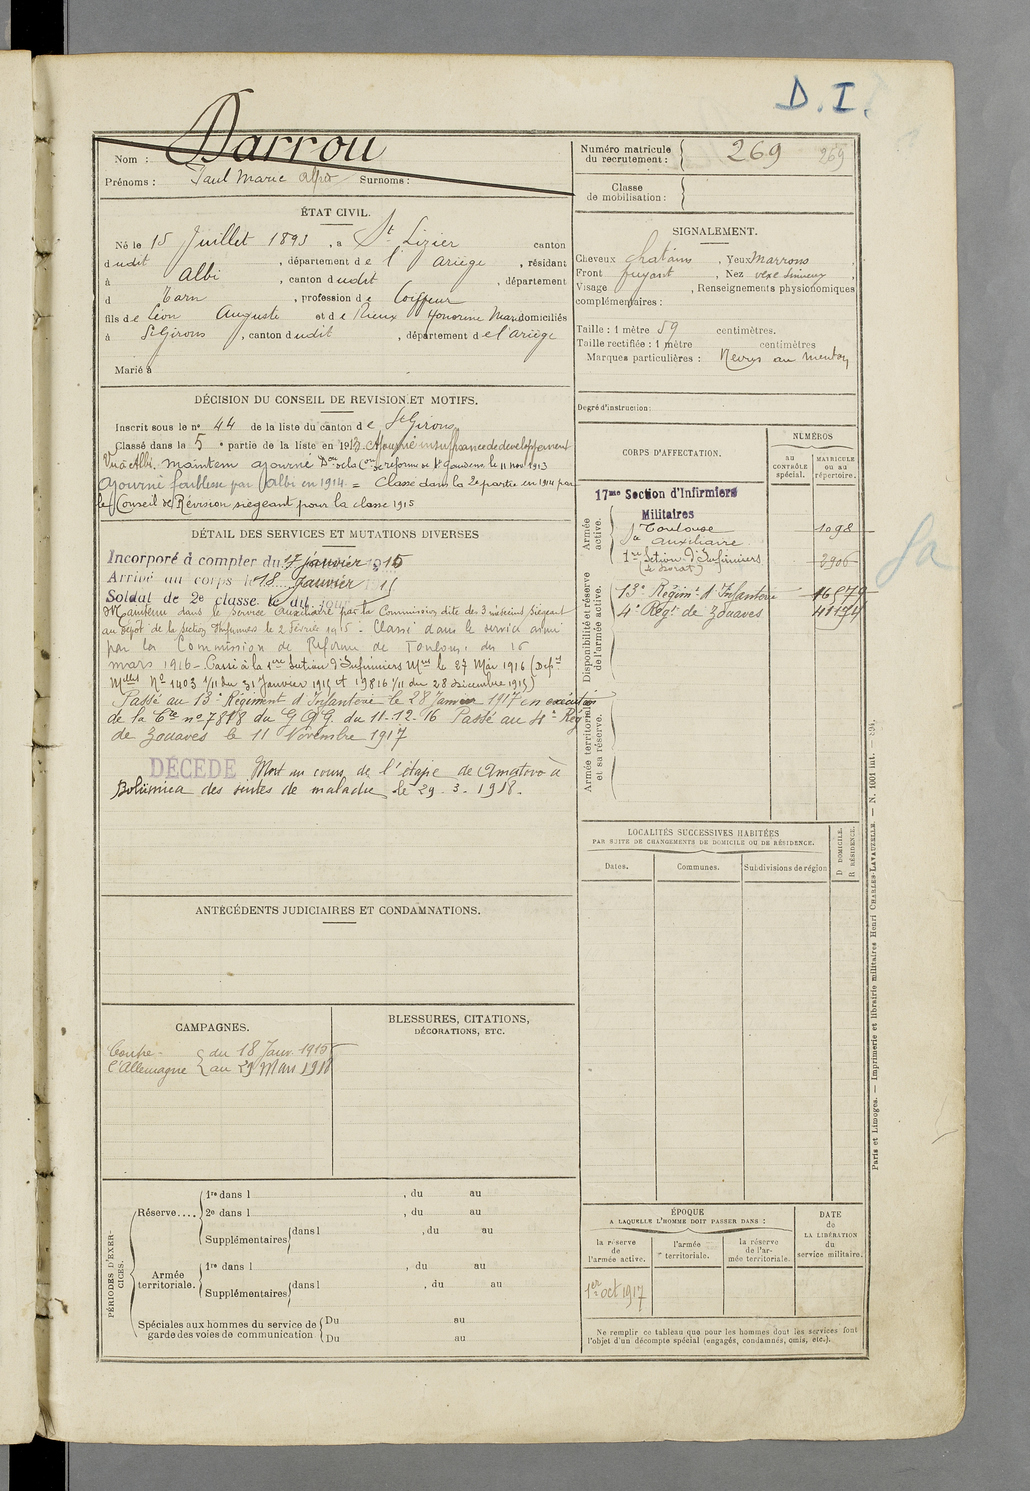 D.I.
Nom : Darrou
Prénoms : Paul Marie Surnoms :
Numéro matricule du recrutement : 269 269
Classe de mobilisation :
ÉTAT CIVIL.
Né le 15 Juillet 1893, à St Lizier canton
dudit, département de l'Ariège, résidant
à Albi, canton dudit, département
d Tarn, profession de Coiffeur
fils de Léon Auguste et de Rieux Honorine Marie domiciliés
à St Girons, canton dudit, département de l'Ariège
Marié à
SIGNALEMENT.
Cheveux chatains, Yeux Marrons,
Front fuyant, Nez vexe sinueux,
Visage , Renseignements physionomiques
complémentaires :
Taille : 1 mètre 59 centimètres.
Taille rectifiée : 1 mètre centimètres
Marques particulières : Nœvus au menton
Degré d'instruction :
DÉCISION DU CONSEIL DE REVISION ET MOTIFS.
Inscrit sous le n° 44 de la liste du canton de St Girons
Classé dans la 5e partie de la liste en 1913 Ajourné insuffisance de developpement
Vu à Albi, maintenu ajourné Don de la Con de réforme de St Gaudens le 11 nov 1913
Ajourné faiblesse par Albi en 1914 = Classé dans la 2e partie en 1914 par
le Conseil de Révision siégeant pour la classe 1915
DÉTAIL DES SERVICES ET MUTATIONS DIVERSES
Incorporé à compter du 17 janvier 1915
Arrivé au corps le 18 Janvier 15
Soldat de 2e classe le dit
Maintenu dans le service auxiliaire par la Commission dite des 3 médecins siégeant
au dépôt de la section d'Infirmiers le 2 Février 1915 - Classé dans le service armé
par la Commission de Réforme de Toulouse du 16
mars 1916 - Passé à la 1ere Section d'Infirmiers Mres le 27 Mai 1916 (Dépt
Melles No 1403 1/11 du 31 Janvier 1915 et 19816 1/11 du 28 décembre 1915)
Passé au 13e Régiment d'Infanterie le 28 Janvier 1917 en exécution
de la Cre no 7818 du G Q G. du 11-12-16 Passé au 4e Reg
de Zouaves le 11 Novembre 1917
DÉCÉDÉ Mort au cours de l'étape de Amatovo à
Bohemica des suites de maladie le 29-3-1918.
CORPS D'AFFECTATION.
NUMÉROS
au CONTRÔLE spécial.
MATRICULE ou au répertoire.
Armée active.
17me Section d'Infirmiers
Militaires
Toulouse
Sn auxiliaire 1098
1re Section d'Infirmiers 2906
Disponibilité et réserve de l'armée active.
13e Régimt d'Infanterie 16579
4e Régt de Zouaves 41174
Armée territoriale et sa réserve.
LOCALITÉS SUCCESSIVES HABITÉES
PAR SUITE DE CHANGEMENTS DE DOMICILE OU DE RÉSIDENCE.
Dates. Communes. Subdivisions de région
D DOMICILE.
R RÉSIDENCE.
ANTÉCÉDENTS JUDICIAIRES ET CONDAMNATIONS.
CAMPAGNES.
Contre- du 18 Janv. 1915
l'Allemagne au 29 Mars 1918
BLESSURES, CITATIONS,
DÉCORATIONS, ETC.
PÉRIODES D'EXERCICES.
Réserve....
1re dans l , du au
2e dans l , du au
Supplémentaires dans l , du au
Armée territoriale.
1re dans l , du au
Supplémentaires dans l , du au
Spéciales aux hommes du service de garde des voies de communication
Du au
Du au
ÉPOQUE
A LAQUELLE L'HOMME DOIT PASSER DANS :
la réserve de l'armée active.
l'armée territoriale.
la réserve de l'armée territoriale.
DATE de LA LIBÉRATION du service militaire.
1er oct 1917
Ne remplir ce tableau que pour les hommes dont les services font
l'objet d'un décompte spécial (engagés, condamnés, omis, etc.).
Paris et Limoges. — Imprimerie et librairie militaires Henri CHARLES-LAVAUZELLE. — N. 1001 int. —